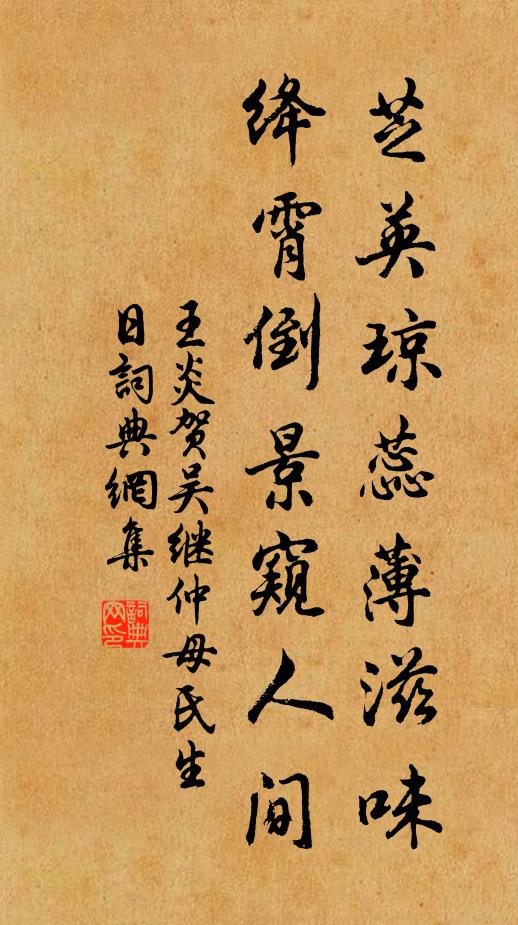 芝英琼蕊薄滋味
绛霄倒景窥人间
王炎贺吴继仲母氏生
日詞典網集
詞典网印